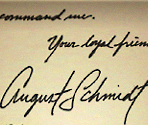 command me.
Your loyal frien
August Schmidt